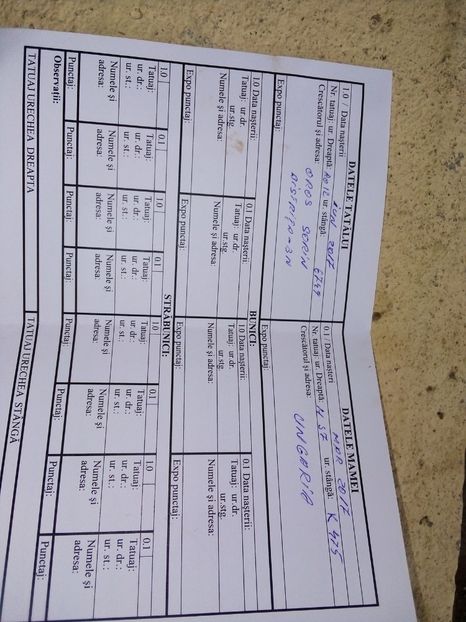 DATELE TATĂLUI
1.0 / Data nașterii IUN 2017
Nr. tatuaj: ur Dreaptă: ur. stângă: 6749
Crescătorul și adresa: OROS SORIN
BISTRIȚA-BN
Expo punctaj:
DATELE MAMEI
0.1 / Data nașterii 2017
Nr. tatuaj: ur. Dreaptă: H 57 ur. stângă: K 475
Crescătorul și adresa: UNGARIA
Expo punctaj:
BUNICI:
1.0 Data nașterii:
Tatuaj: ur. dr.
ur. stg.
Numele și adresa:
Expo punctaj:
0.1 Data nașterii:
Tatuaj: ur. dr.
ur. stg.
Numele și adresa:
Expo punctaj:
1.0 Data nașterii:
Tatuaj: ur. dr.
ur. stg.
Numele și adresa:
Expo punctaj:
0.1 Data nașterii:
Tatuaj: ur. dr.
ur. stg.
Numele și adresa:
Expo punctaj:
STRĂBUNICI:
1.0
Tatuaj:
ur. dr.:
ur. st.:
Numele și
adresa:
Punctaj:
0.1
Tatuaj:
ur. dr.:
ur. st.:
Numele și
adresa:
Punctaj:
1.0
Tatuaj:
ur. dr.:
ur. st.:
Numele și
adresa:
Punctaj:
0.1
Tatuaj:
ur. dr.:
ur. st.:
Numele și
adresa:
Punctaj:
1.0
Tatuaj:
ur. dr.:
ur. st.:
Numele și
adresa:
Punctaj:
0.1
Tatuaj:
ur. dr.:
ur. st.:
Numele și
adresa:
Punctaj:
1.0
Tatuaj:
ur. dr.:
ur. st.:
Numele și
adresa:
Punctaj:
0.1
Tatuaj:
ur. dr.:
ur. st.:
Numele și
adresa:
Punctaj:
Observații:
TATUAJ URECHEA DREAPTA
TATUAJ URECHEA STÂNGĂ